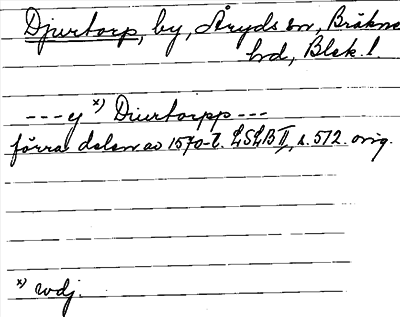 Djurtorp, by, Åryds sn, Bräkne
hd, Blek. l.
--- y x) Diurtorpp ---
förra delen av 1570-t. LSLB II, s. 512. orig.
x) ndj.